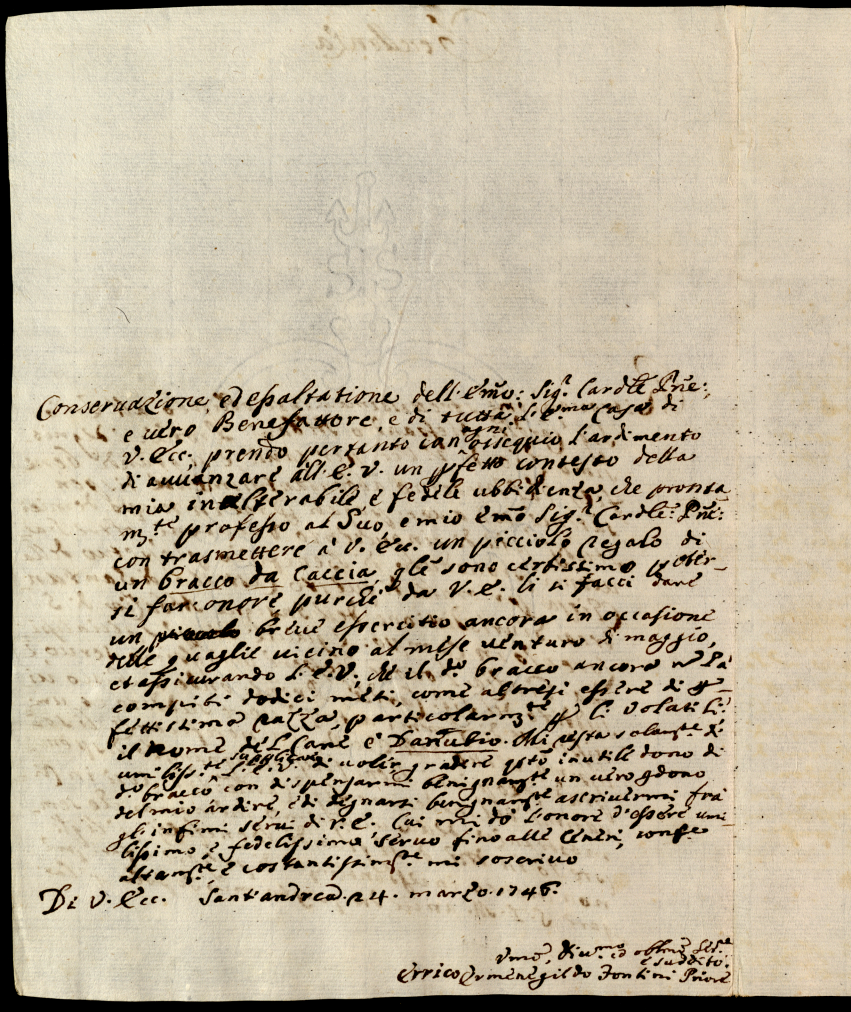 Conservazione, ed essaltatione dell'Emo: Sigr Cardle Pñe:,
e vero Benefattore, e di tutta Casa di
V. Ecc. prendo pertanto con ogni ossequio l'ardimento
di avvanzare all'E. V. un contesto della
mia inalterabile e fedele ubbidienza, che pronta
mte professo al Suo, e mio Emo Sigr Cardle: Pñe:
con trasmettere à V. Ecc. un picciolo regalo di
un bracco da Caccia, sono certissimo poter-
si far onore, purche da V. E. li si facci dare
un breve essercitio ancora in occasione
delle quaglie vicino al mese venturo di maggio,
et assicurando l'E. V. che il do bracco ancora
compiti dodici mesi, come altresi essere di p-
fettissima razza, particolarmte p li volatili:
il nome del Cane è Danubio. Mi resta solamte di
umilisste supplicare l'E. V. di voler gradire qsto inutile dono di
do bracco con dispensarmi benignamte un vero pdono
del mio ardire, e di degnarsi benignamte ascrivermi frà
gl'infimi servi di V. E. Cui mi dò l'onore d'essere umi-
lissimo, e fedelissimo servo fino alle Ceneri, conse
altamte, e costantissimte mi soscrivo
Di V. Ecc. Sant'andrea 24. marzo 1746.
Vmo, Divmo ed oblmo Serre
e suddito
Errico Ermenegildo Fontini Priore